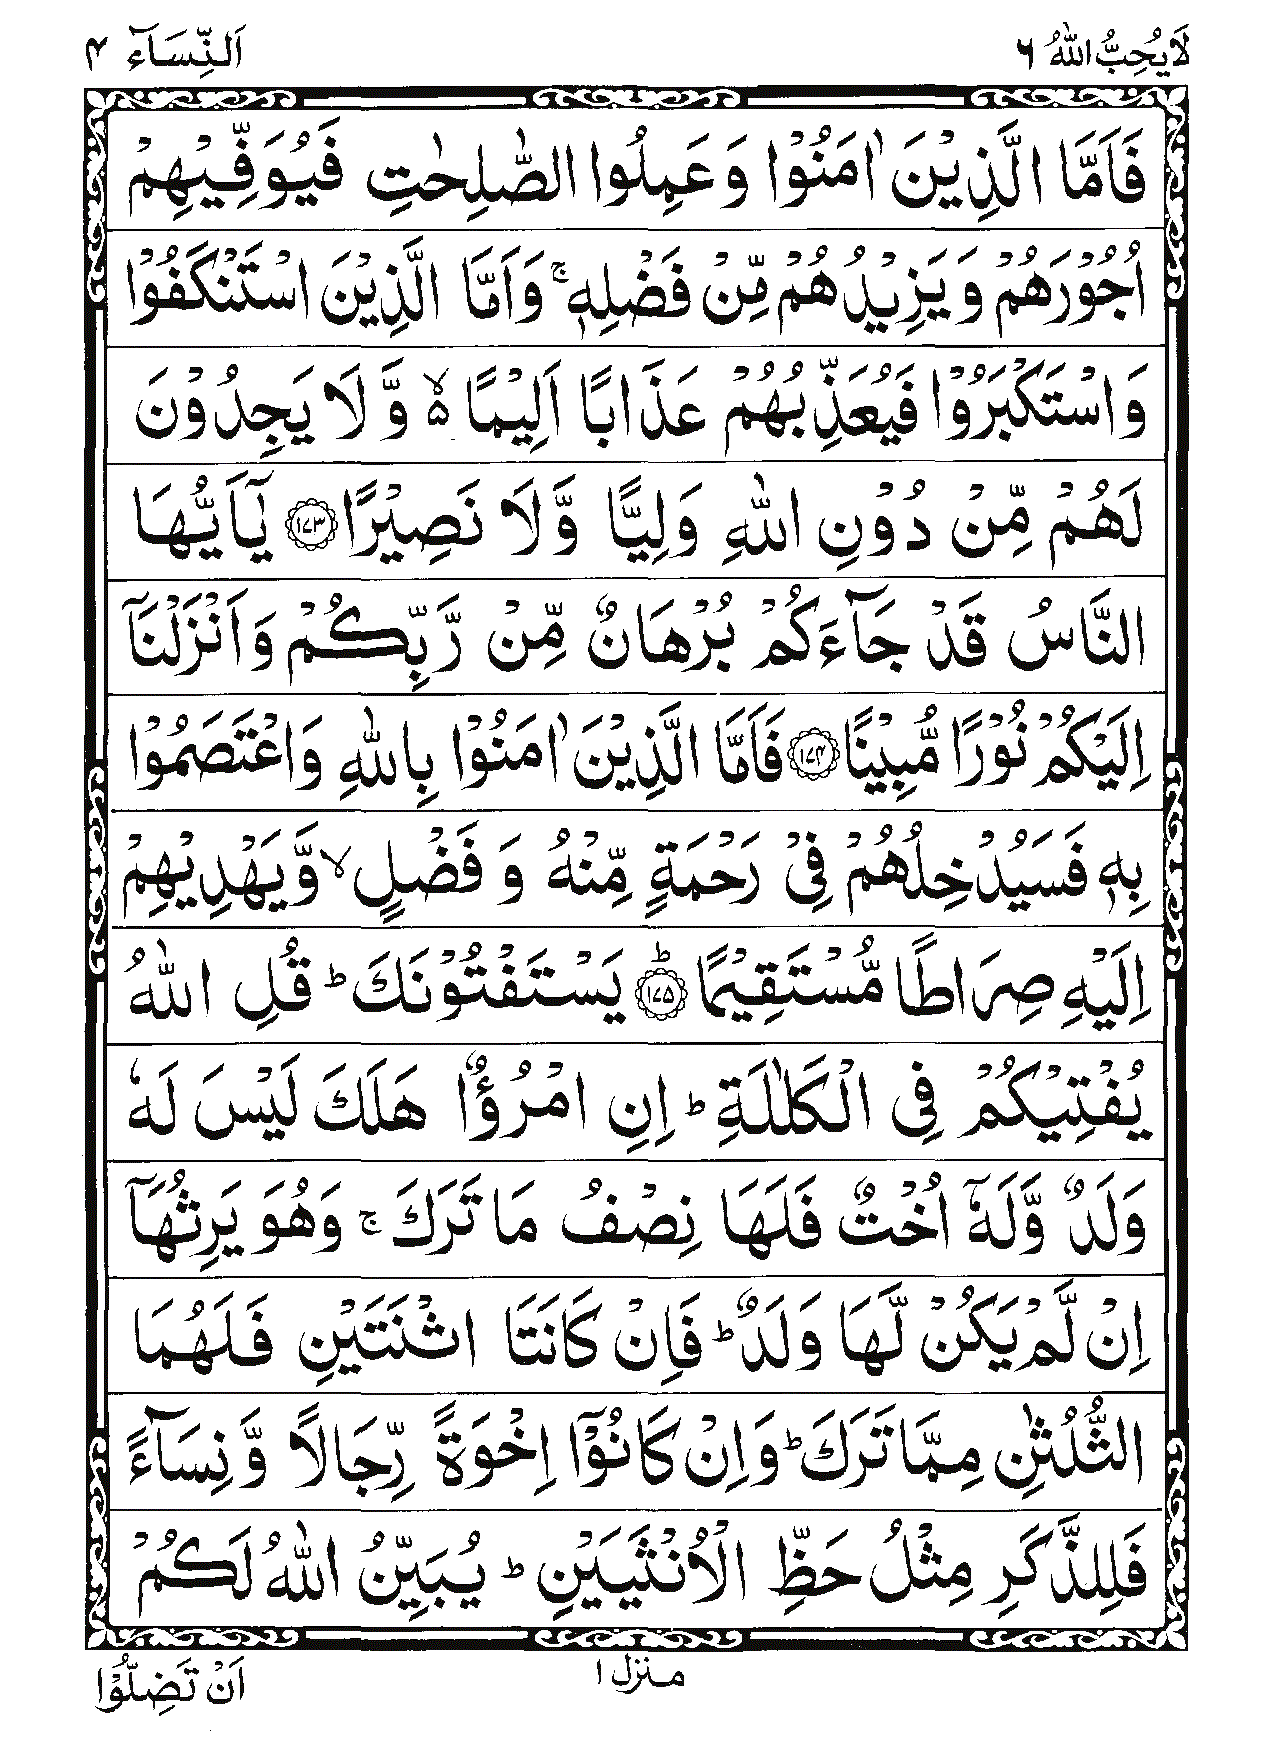 لَا يُحِبُّ اللّٰهُ ٦
اَلنِّسَآء ٤
فَاَمَّا الَّذِيْنَ اٰمَنُوْا وَعَمِلُوا الصّٰلِحٰتِ فَيُوَفِّيْهِمْ
اُجُوْرَهُمْ وَيَزِيْدُهُمْ مِّنْ فَضْلِهٖ ۚ وَاَمَّا الَّذِيْنَ اسْتَنْكَفُوْا
وَاسْتَكْبَرُوْا فَيُعَذِّبُهُمْ عَذَابًا اَلِيْمًا ۵ۙ وَّلَا يَجِدُوْنَ
لَهُمْ مِّنْ دُوْنِ اللّٰهِ وَلِيًّا وَّلَا نَصِيْرًا ﴿۱۷۳﴾ يٰٓاَيُّهَا
النَّاسُ قَدْ جَآءَكُمْ بُرْهَانٌ مِّنْ رَّبِّكُمْ وَاَنْزَلْنَآ
اِلَيْكُمْ نُوْرًا مُّبِيْنًا ﴿۱۷۴﴾ فَاَمَّا الَّذِيْنَ اٰمَنُوْا بِاللّٰهِ وَاعْتَصَمُوْا
بِهٖ فَسَيُدْخِلُهُمْ فِيْ رَحْمَةٍ مِّنْهُ وَفَضْلٍ ۙ وَّيَهْدِيْهِمْ
اِلَيْهِ صِرَاطًا مُّسْتَقِيْمًا ﴿۱۷۵﴾ؕ يَسْتَفْتُوْنَكَ ؕ قُلِ اللّٰهُ
يُفْتِيْكُمْ فِي الْكَلٰلَةِ ؕ اِنِ امْرُؤٌا هَلَكَ لَيْسَ لَهٗ
وَلَدٌ وَّلَهٗٓ اُخْتٌ فَلَهَا نِصْفُ مَا تَرَكَ ۚ وَهُوَ يَرِثُهَآ
اِنْ لَّمْ يَكُنْ لَّهَا وَلَدٌ ؕ فَاِنْ كَانَتَا اثْنَتَيْنِ فَلَهُمَا
الثُّلُثٰنِ مِمَّا تَرَكَ ؕ وَاِنْ كَانُوْٓا اِخْوَةً رِّجَالًا وَّنِسَآءً
فَلِلذَّكَرِ مِثْلُ حَظِّ الْاُنْثَيَيْنِ ؕ يُبَيِّنُ اللّٰهُ لَكُمْ
منزل ۱
اَنْ تَضِلُّوْا